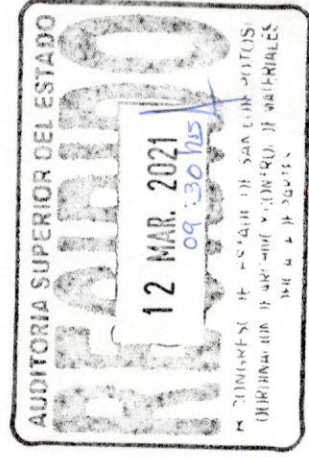 AUDITORIA SUPERIOR DEL ESTADO
RECIBIDO
12 MAR. 2021
09:30 hrs
CONGRESO DEL ESTADO DE SAN LUIS POTOSI
COORDINACION DE ARCHIVO Y CONTROL DE MATERIALES
DE PARTES